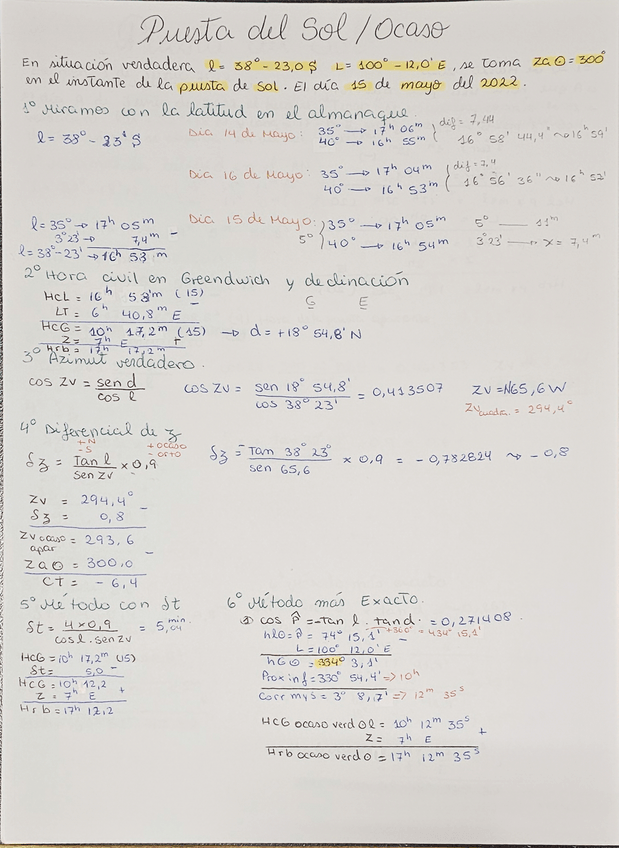 Puesta del Sol / Ocaso
En situación verdadera l= 38° - 23,0 S L= 100° - 12,0' E, se toma Za ⊙ = 300°
en el instante de la puesta de sol. El día 15 de mayo del 2022.
1º Miramos con la latitud en el almanaque.
l = 38° - 23' S
Día 14 de Mayo: 35° → 17h 06m dif = 7,44
40° → 16h 55m 16° 58' 44,4" ~ 16h 59'
Día 16 de Mayo: 35° → 17h 04m dif = 7,4
40° → 16h 53m 16° 56' 36" ~ 16h 52'
l = 35° → 17h 05m
3° 23' → 7,4m -
l = 38° - 23' → 16h 58m
Día 15 de Mayo: 35° → 17h 05m 5° — 11m
5° 40° → 16h 54m 3° 23' — x = 7,4m
2º Hora civil en Greendwich y declinación
HcL = 16h 58m (15) G E
LT = 6h 40,8m E -
HcG = 10h 17,2m (15) → d = +18° 54,8' N
Z = 7h E +
Hrb = 17h 17,2m
3º Azimut verdadero.
cos Zv = sen d / cos l cos Zv = sen 18° 54,8' / cos 38° 23' = 0,413507 Zv = N65,6 W
Zv cuadra. = 294,4°
4º Diferencial de z
+N -S + ocaso - orto
δz = Tan l / sen Zv x 0,9 δz = - Tan 38° 23' / sen 65,6 x 0,9 = - 0,782824 ~ - 0,8
Zv = 294,4° -
δz = 0,8
Zv ocaso apar = 293,6 -
Za ⊙ = 300,0
CT = - 6,4
5º Método con δt
δt = 4 x 0,9 / cos l . sen Zv = 5,04 min.
HcG = 10h 17,2m (15)
δt = 5,0 -
HcG = 10h 12,2
Z = 7h E +
Hrb = 17h 12,2
6º Método más Exacto.
cos P̂ = -Tan l . tan d = 0,271408
hl⊙ = P̂ = 74° 15,1' +360° = 434° 15,1'
L = 100° 12,0' E
hG ⊙ = 334° 3,1'
Prox inf = 330° 54,4' => 10h
Corr m y s = 3° 8,7' => 12m 35s
HcG ocaso verd ⊙ l = 10h 12m 35s +
Z = 7h E
Hrb ocaso verd ⊙ = 17h 12m 35s